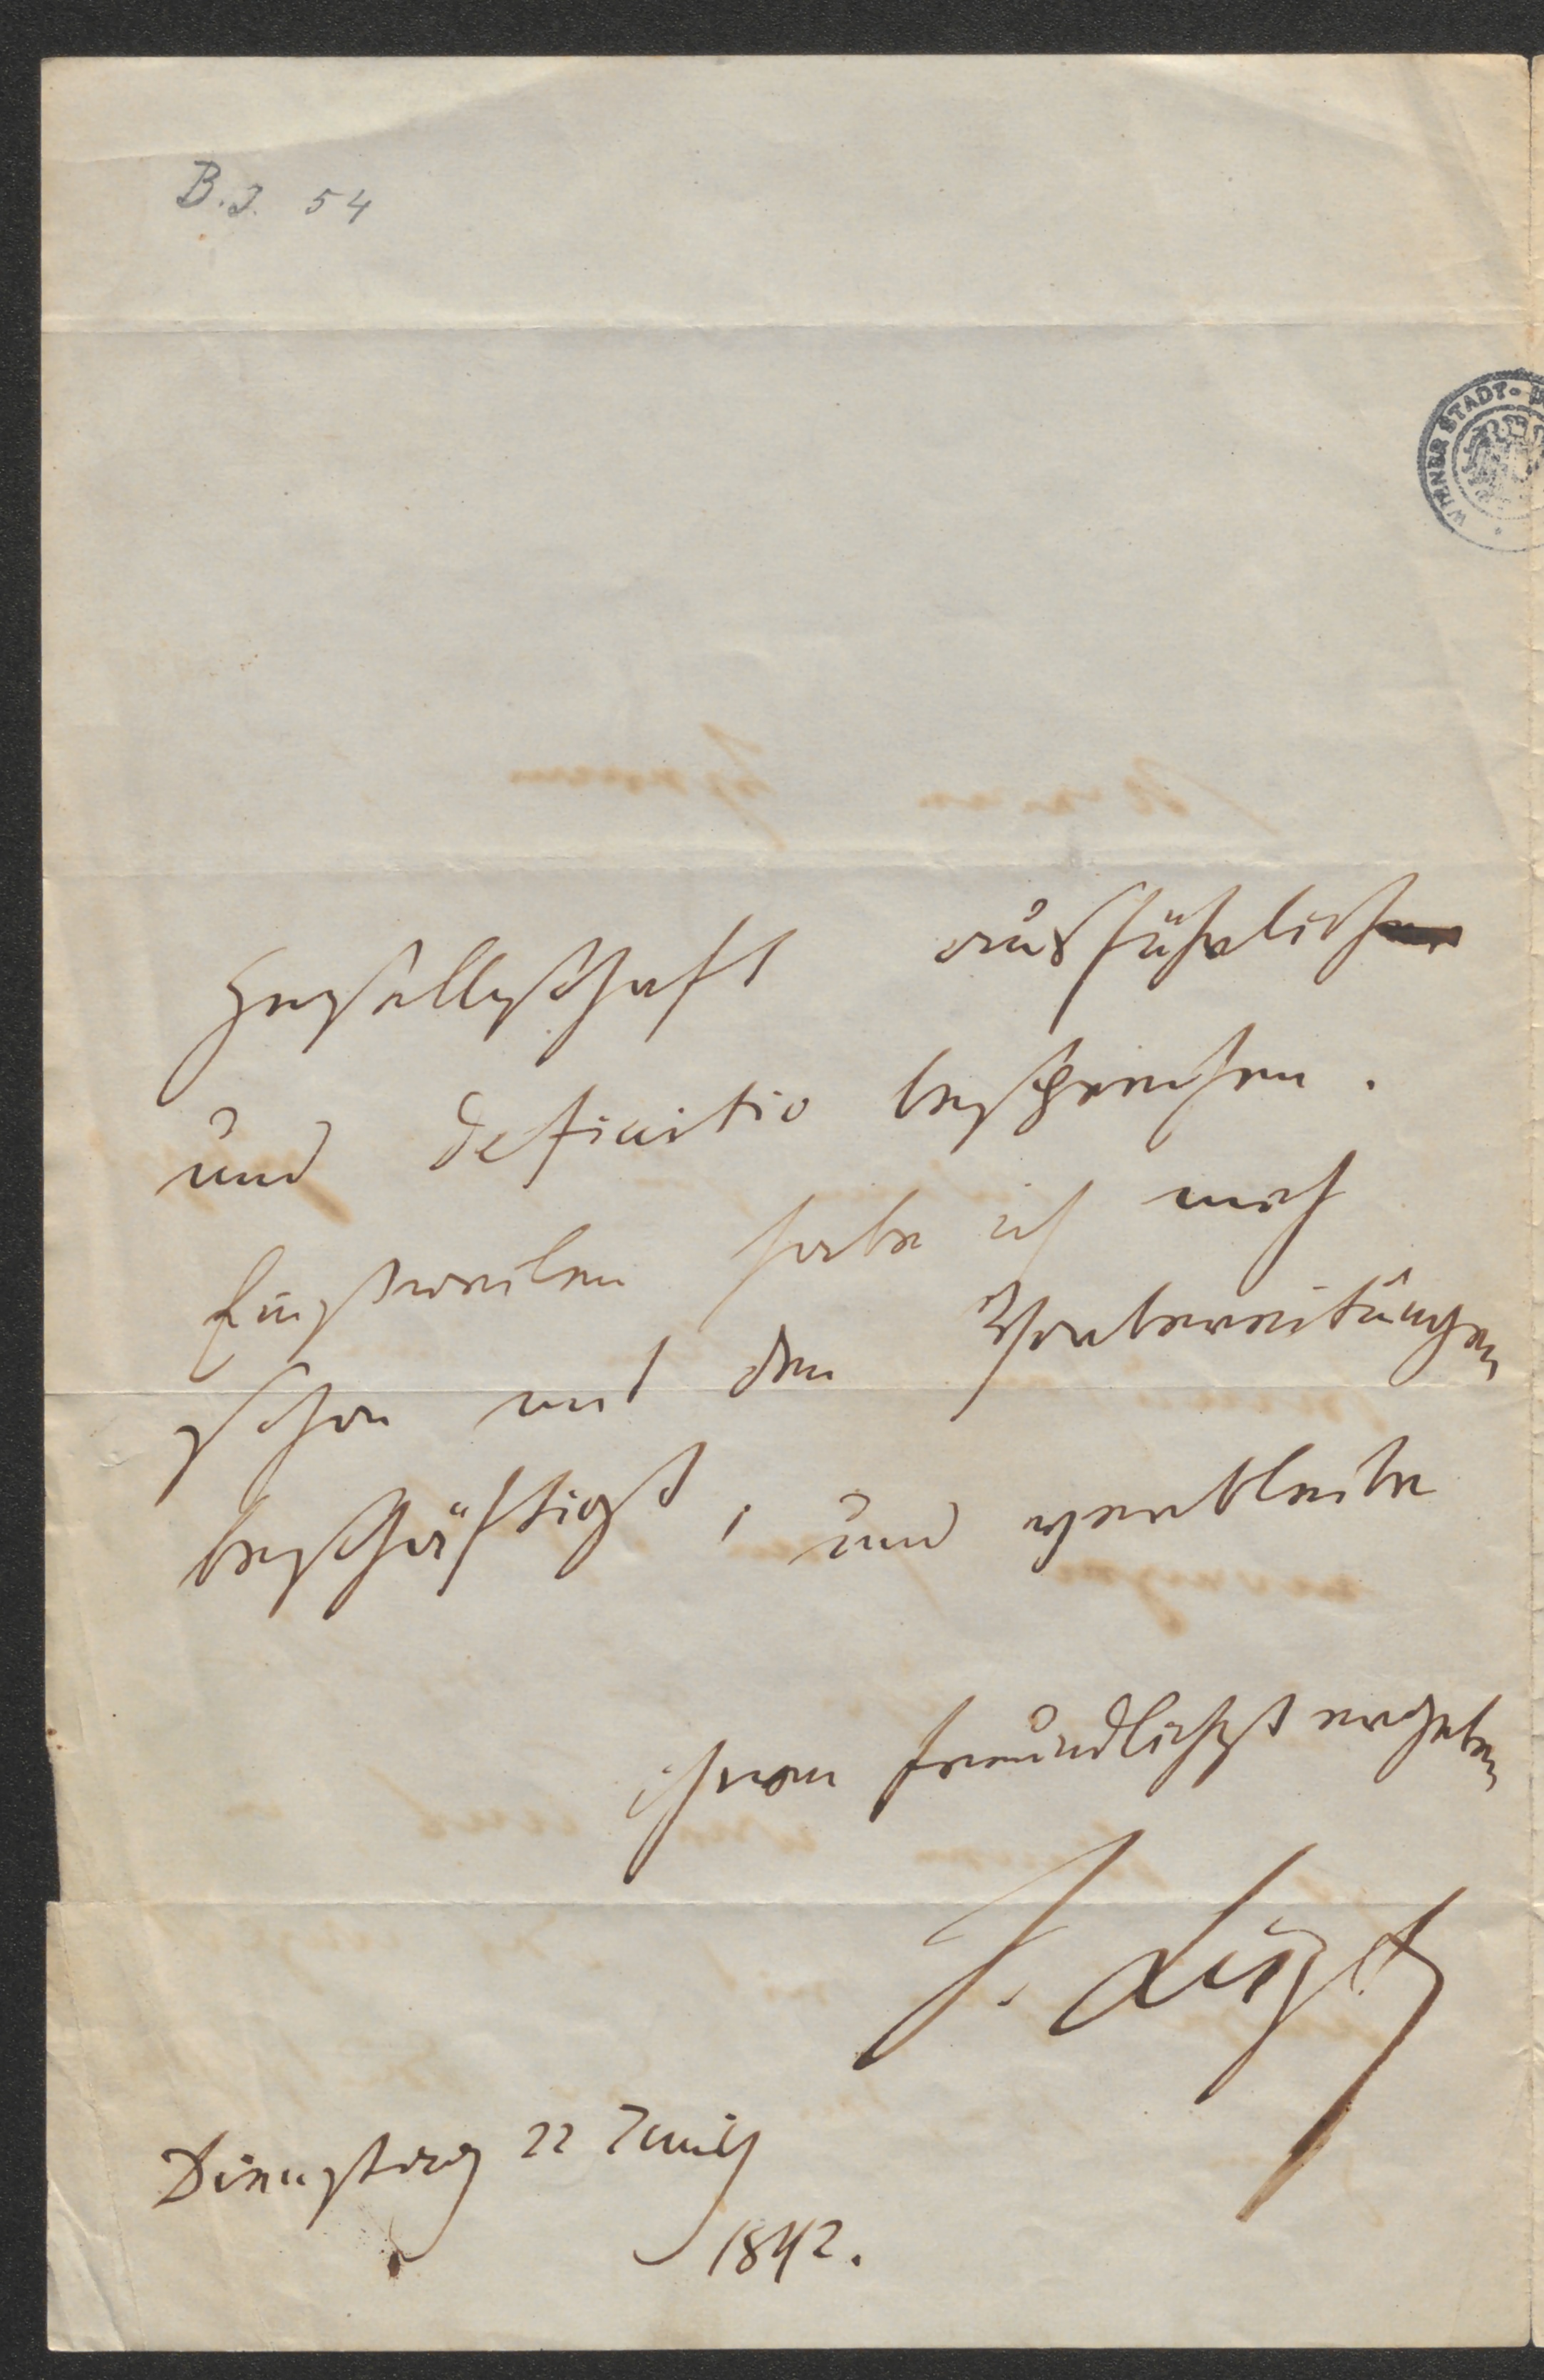 B.J. 54
WIENER STADT-
Gesellschaft ausführlich
und definitiv besprechen.
Einstweilen habe ich mich
schon mit den Vorbereitungen
beschäftigt, und verbleibe
ihnen freundlichst ergeben
F. Liszt
Dienstag 22
1842.